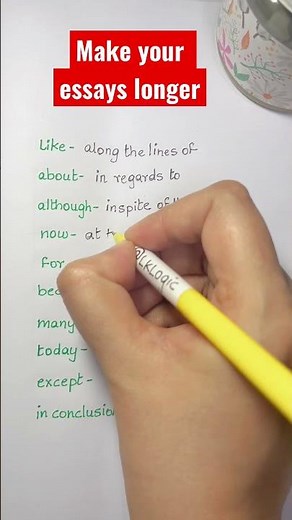 Make your
essays longer
Like - along the lines of
about - in regards to
although - inspite of
now - at
For
@LKLogic
many
today -
except -
in conclusion